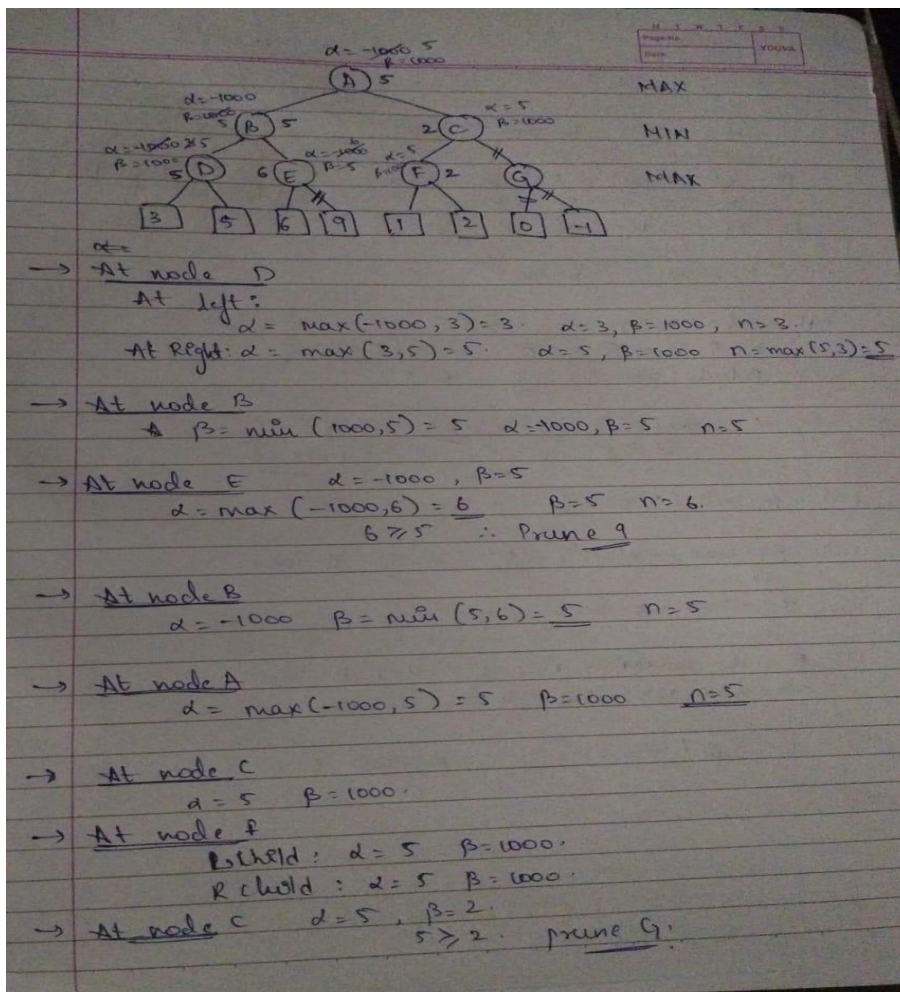 M T W T F S S
Page No.
Date:
YOUVA
α = -1000 5
β = 1000
A 5
MAX
α = -1000
β = 1000 5
B 5
α = 5
β = 1000
2 C
MIN
α = -1000 3 5
β = 1000
5 D
α = -1000 6
β = 5
6 E
α = 5
β = 1000
F 2
G
MAX
3 5 6 9 1 2 0 -1
α =
→ At node D
At left :
α = max (-1000, 3) = 3. α = 3, β = 1000, n = 3.
At Right : α = max (3, 5) = 5. α = 5, β = 1000 n = max (5,3) = 5
→ At node B
β = min (1000, 5) = 5 α = -1000, β = 5 n = 5
→ At node E α = -1000 , β = 5
α = max (-1000, 6) = 6 β = 5 n = 6.
6 ≥ 5 ∴ Prune 9
→ At node B
α = -1000 β = min (5, 6) = 5 n = 5
→ At node A
α = max (-1000, 5) = 5 β = 1000 n = 5
→ At node C
α = 5 β = 1000.
→ At node f
L child : α = 5 β = 1000.
R child : α = 5 β = 1000.
→ At node C α = 5 , β = 2.
5 ≥ 2. prune G.